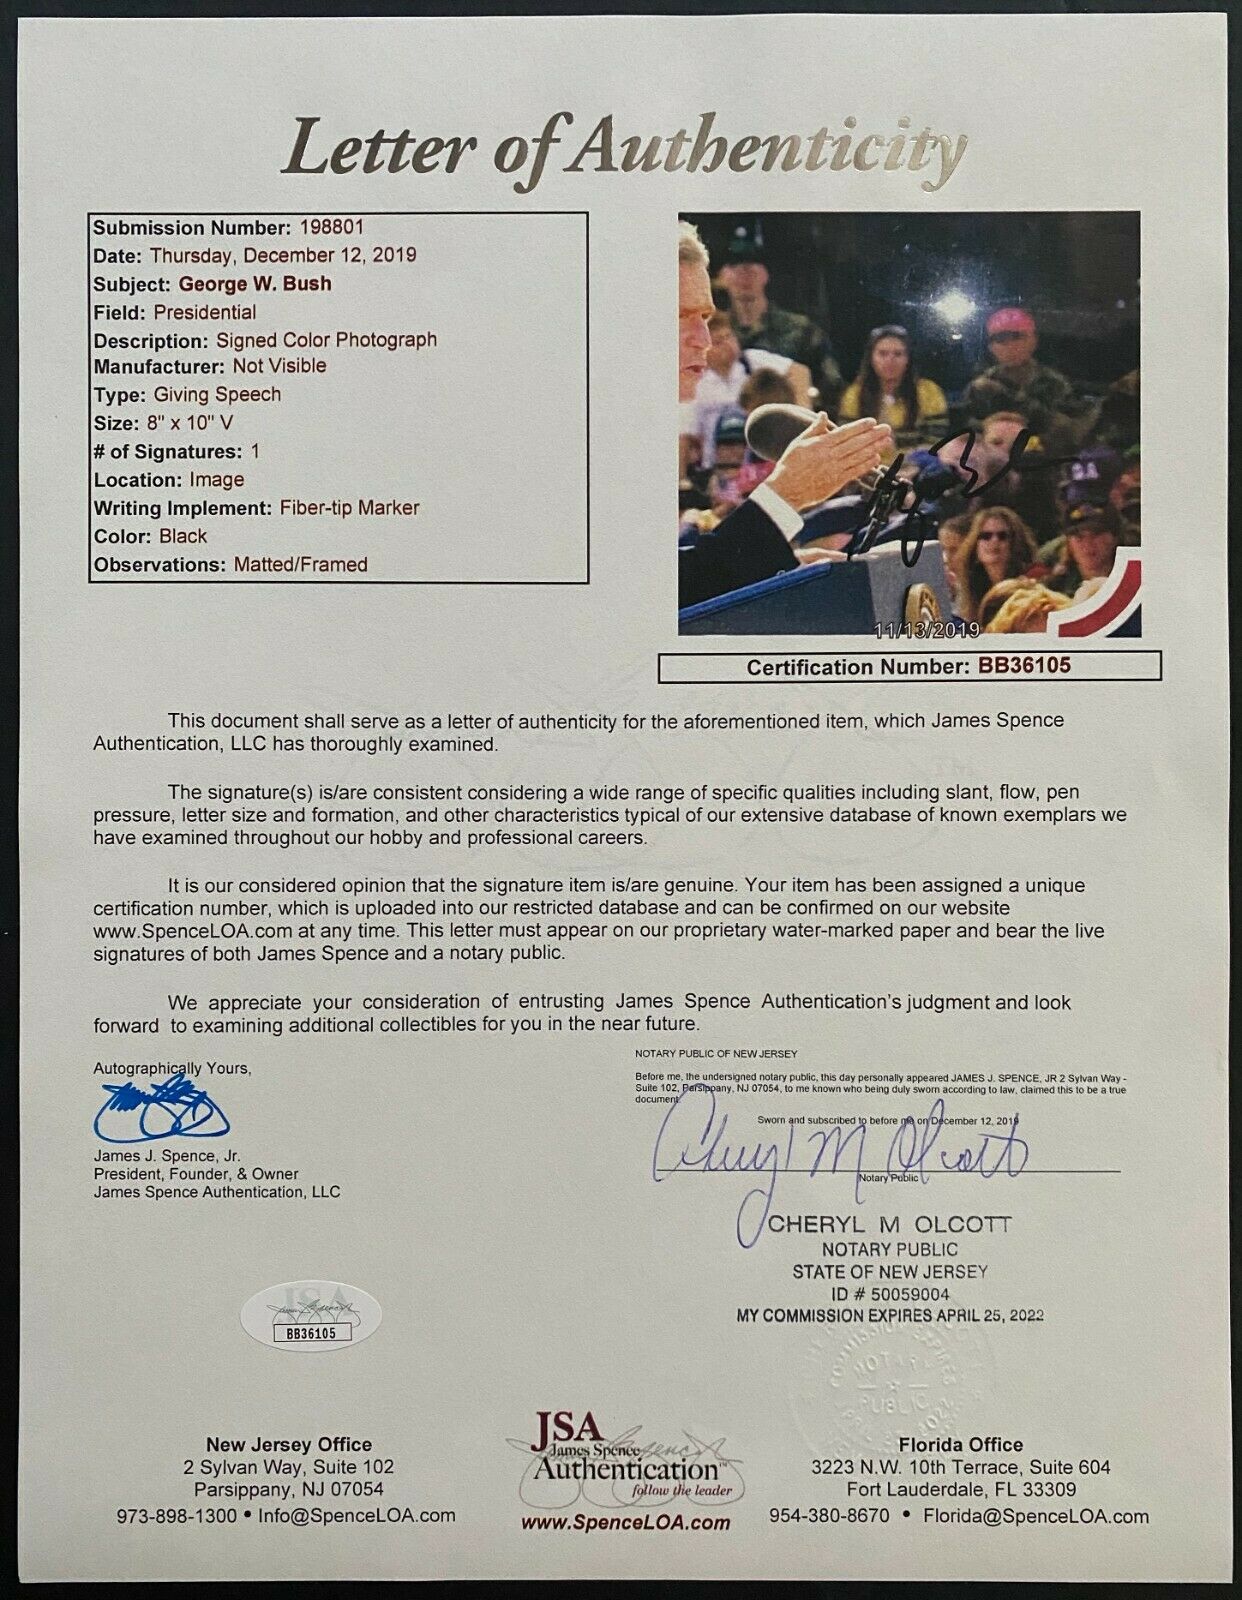 Letter of Authenticity
Submission Number: 198801
Date: Thursday, December 12, 2019
Subject: George W. Bush
Field: Presidential
Description: Signed Color Photograph
Manufacturer: Not Visible
Type: Giving Speech
Size: 8" x 10" V
# of Signatures: 1
Location: Image
Writing Implement: Fiber-tip Marker
Color: Black
Observations: Matted/Framed
11/13/2019
Certification Number: BB36105
This document shall serve as a letter of authenticity for the aforementioned item, which James Spence
Authentication, LLC has thoroughly examined.
The signature(s) is/are consistent considering a wide range of specific qualities including slant, flow, pen
pressure, letter size and formation, and other characteristics typical of our extensive database of known exemplars we
have examined throughout our hobby and professional careers.
It is our considered opinion that the signature item is/are genuine. Your item has been assigned a unique
certification number, which is uploaded into our restricted database and can be confirmed on our website
www.SpenceLOA.com at any time. This letter must appear on our proprietary water-marked paper and bear the live
signatures of both James Spence and a notary public.
We appreciate your consideration of entrusting James Spence Authentication's judgment and look
forward to examining additional collectibles for you in the near future.
Autographically Yours,
James J. Spence, Jr.
President, Founder, & Owner
James Spence Authentication, LLC
NOTARY PUBLIC OF NEW JERSEY
Before me, the undersigned notary public, this day personally appeared JAMES J. SPENCE, JR 2 Sylvan Way -
Suite 102, Parsippany, NJ 07054, to me known who being duly sworn according to law, claimed this to be a true
document.
Sworn and subscribed to before me on December 12, 2019
Cheryl M Olcott
Notary Public
CHERYL M OLCOTT
NOTARY PUBLIC
STATE OF NEW JERSEY
ID # 50059004
MY COMMISSION EXPIRES APRIL 25, 2022
JSA
BB36105
NOTARY
PUBLIC
New Jersey Office
2 Sylvan Way, Suite 102
Parsippany, NJ 07054
973-898-1300 • Info@SpenceLOA.com
JSA
James Spence
Authentication™
follow the leader
www.SpenceLOA.com
Florida Office
3223 N.W. 10th Terrace, Suite 604
Fort Lauderdale, FL 33309
954-380-8670 • Florida@SpenceLOA.com